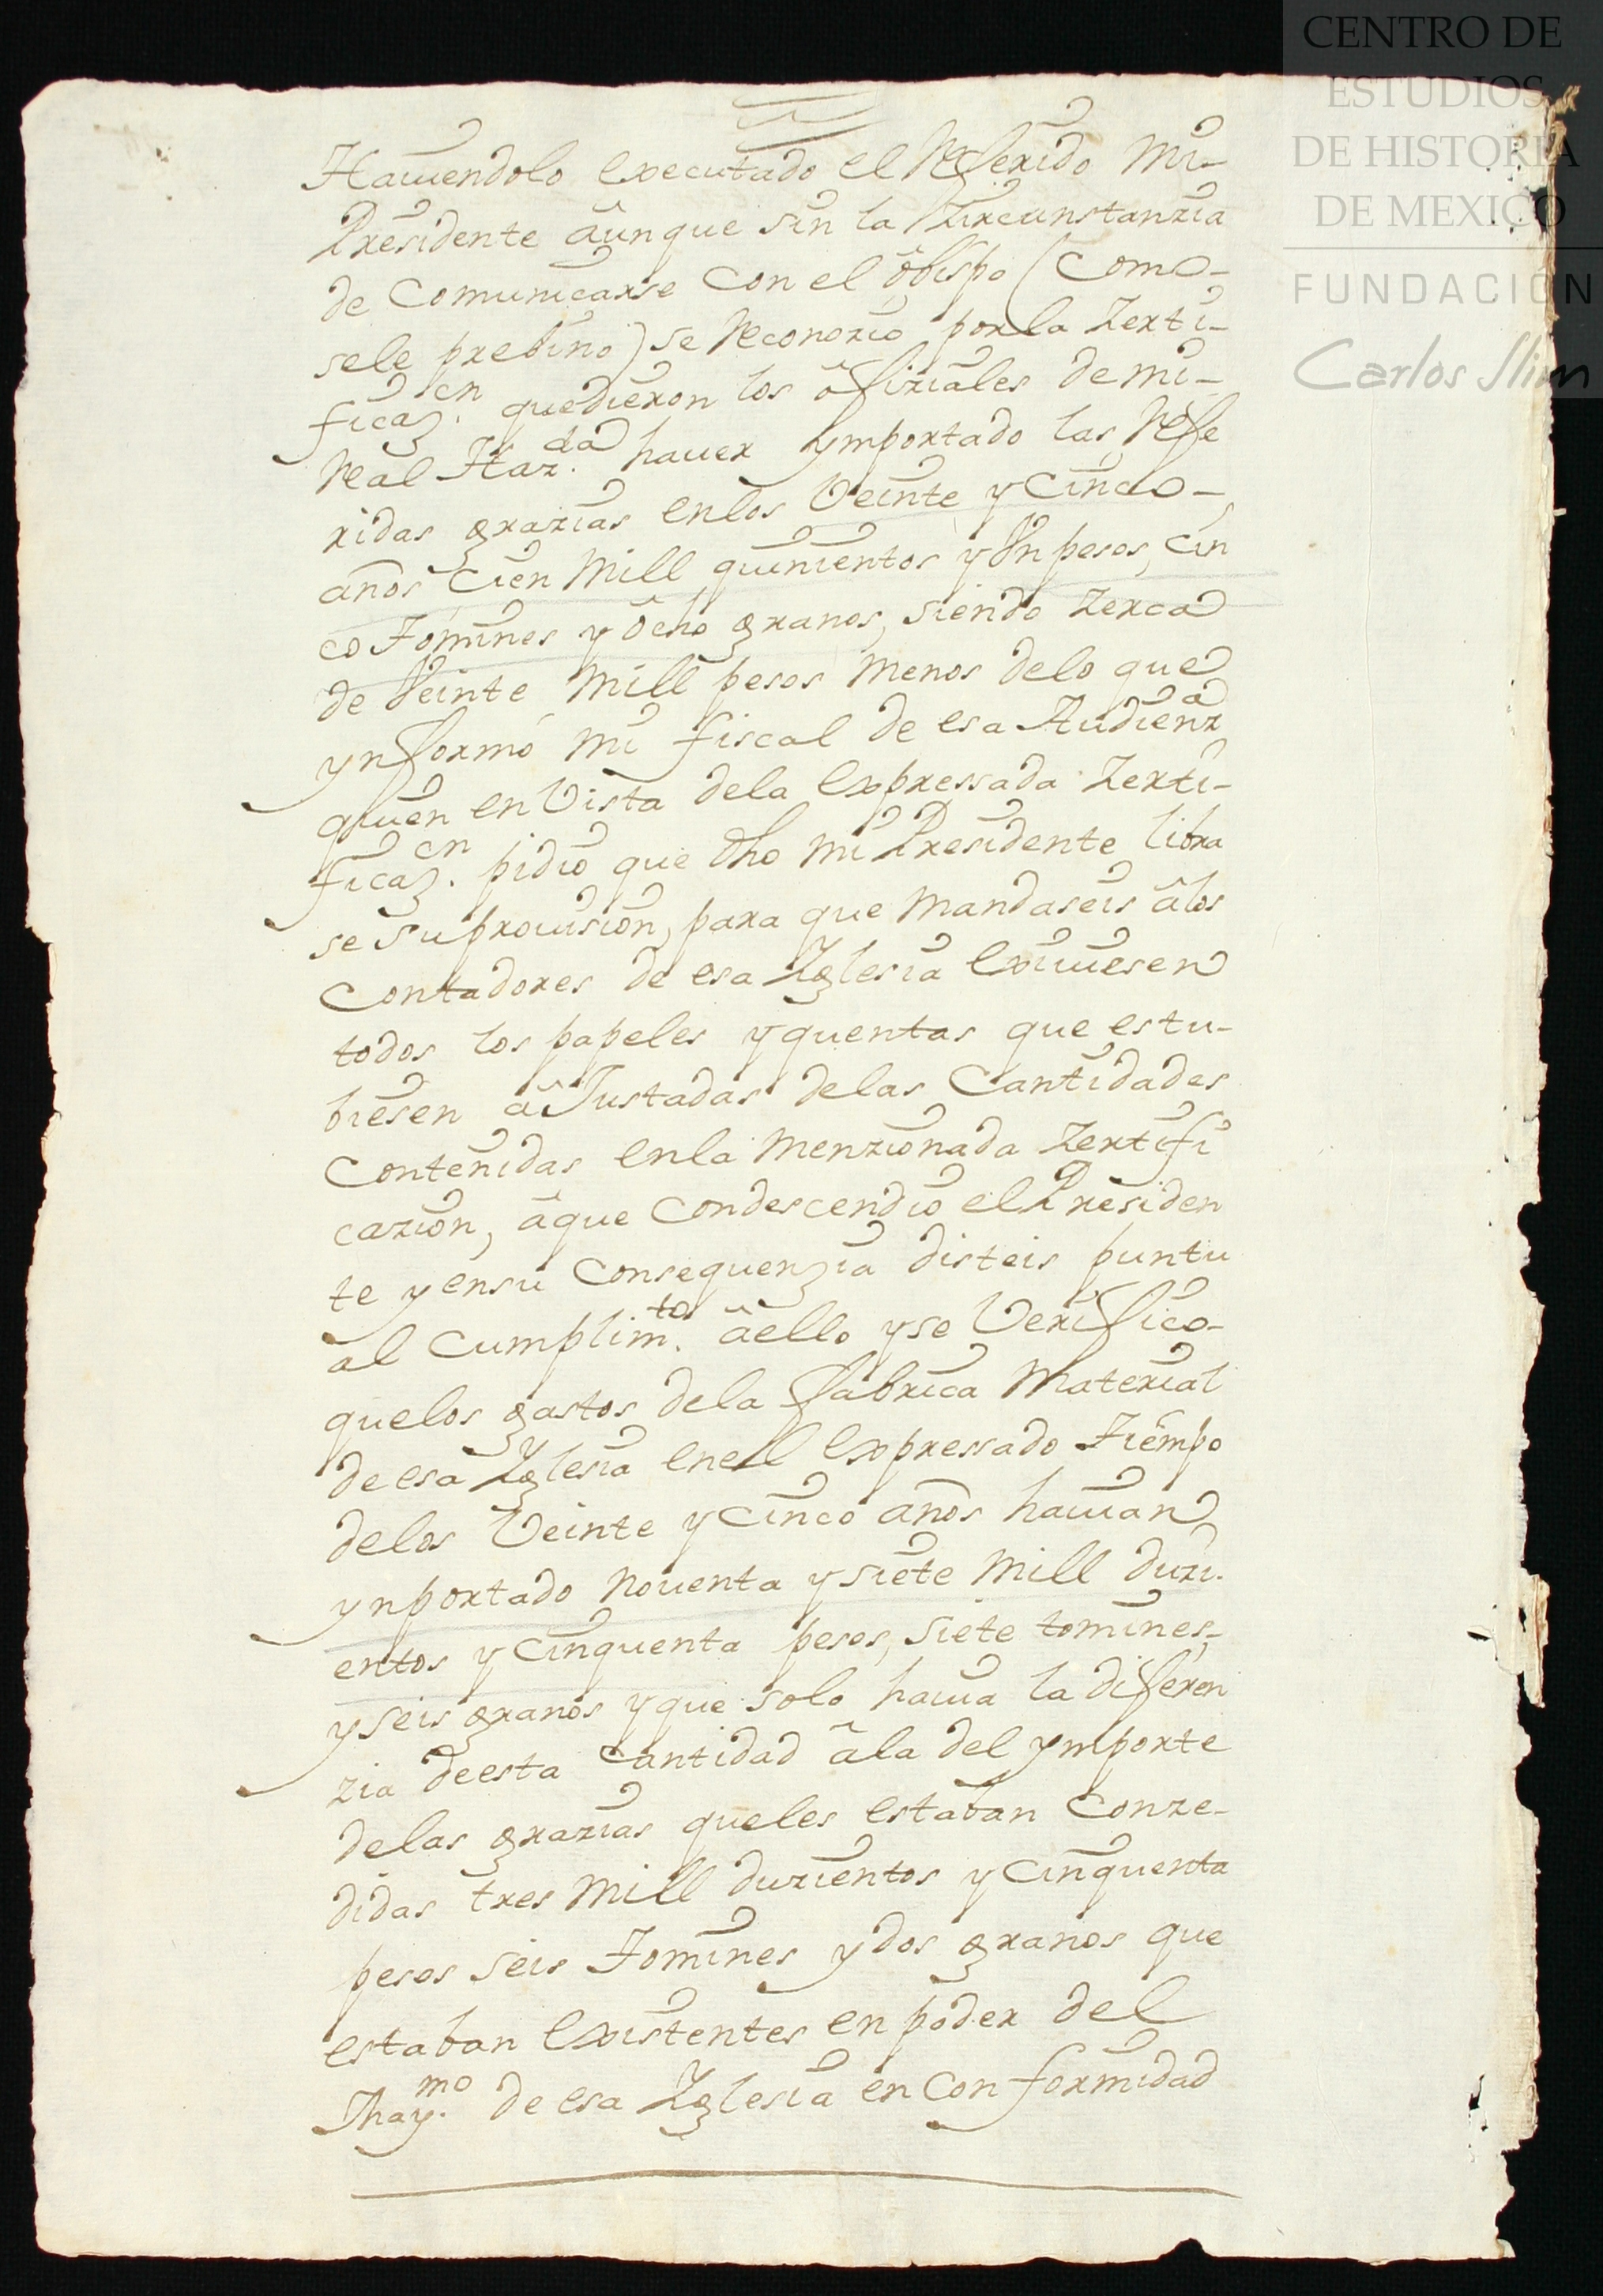 CENTRO DE
ESTUDIOS
DE HISTORIA
DE MEXICO
FUNDACIÓN
Carlos Slim
Haviendolo executado el Referido Mi-
Presidente âunque sin la Zircunstanzia
de Comunicarse con el ôbispo (Como-
sele prebino) se Reconozio por la Zerti-
ficaz.on quedieron los ôfiziales de mi-
Real Haz.da haver ymportado las Refe
ridas grazias enlos Veinte y Cinco-
años Cien Mill quinientos y Un pesos, Cin
co Tomines y ôcho granos, siendo Zerca
de Veinte Mill pesos Menos delo que
ynformó mi fiscal de esa Audienz.a
quien en Vista dela Expressada Zerti-
ficaz.on pidio que dho mi Presidente libra
se su provision, para que Mandaseis âlos
Contadores de esa Yglesia Exiviesen
todos los papeles y quentas que estu-
biesen âJustadas delas Cantidades
Contenidas enla Menzionada Zertifi
cazion, âque Condescendio el Presiden
te y ensu Consequenzia disteis puntu
al Cumplim.to âello y se Verifico-
quelos gastos dela fabrica Material
de esa Yglesia enell Expressado Tiempo
delos Veinte y Cinco años havian
ynportado Noventa y siete Mill duzi-
entos y Cinquenta pesos, siete tomines,
y seis granos y que solo havia la diferen
zia de esta Cantidad âla del ymporte
delas grazias queles estaban Conze-
didas tres Mill duzientos y Cinquenta
pesos seis Tomines y dos granos que
estaban Existentes en poder del
Thay.mo de esa Yglesia en Conformidad